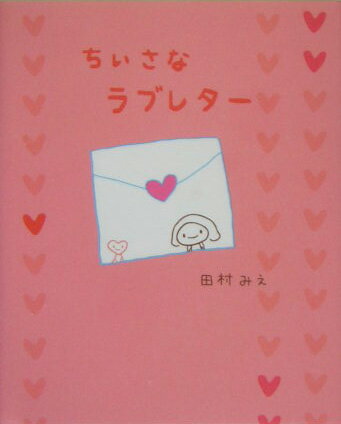 ちいさな
ラブレター
田村みえ